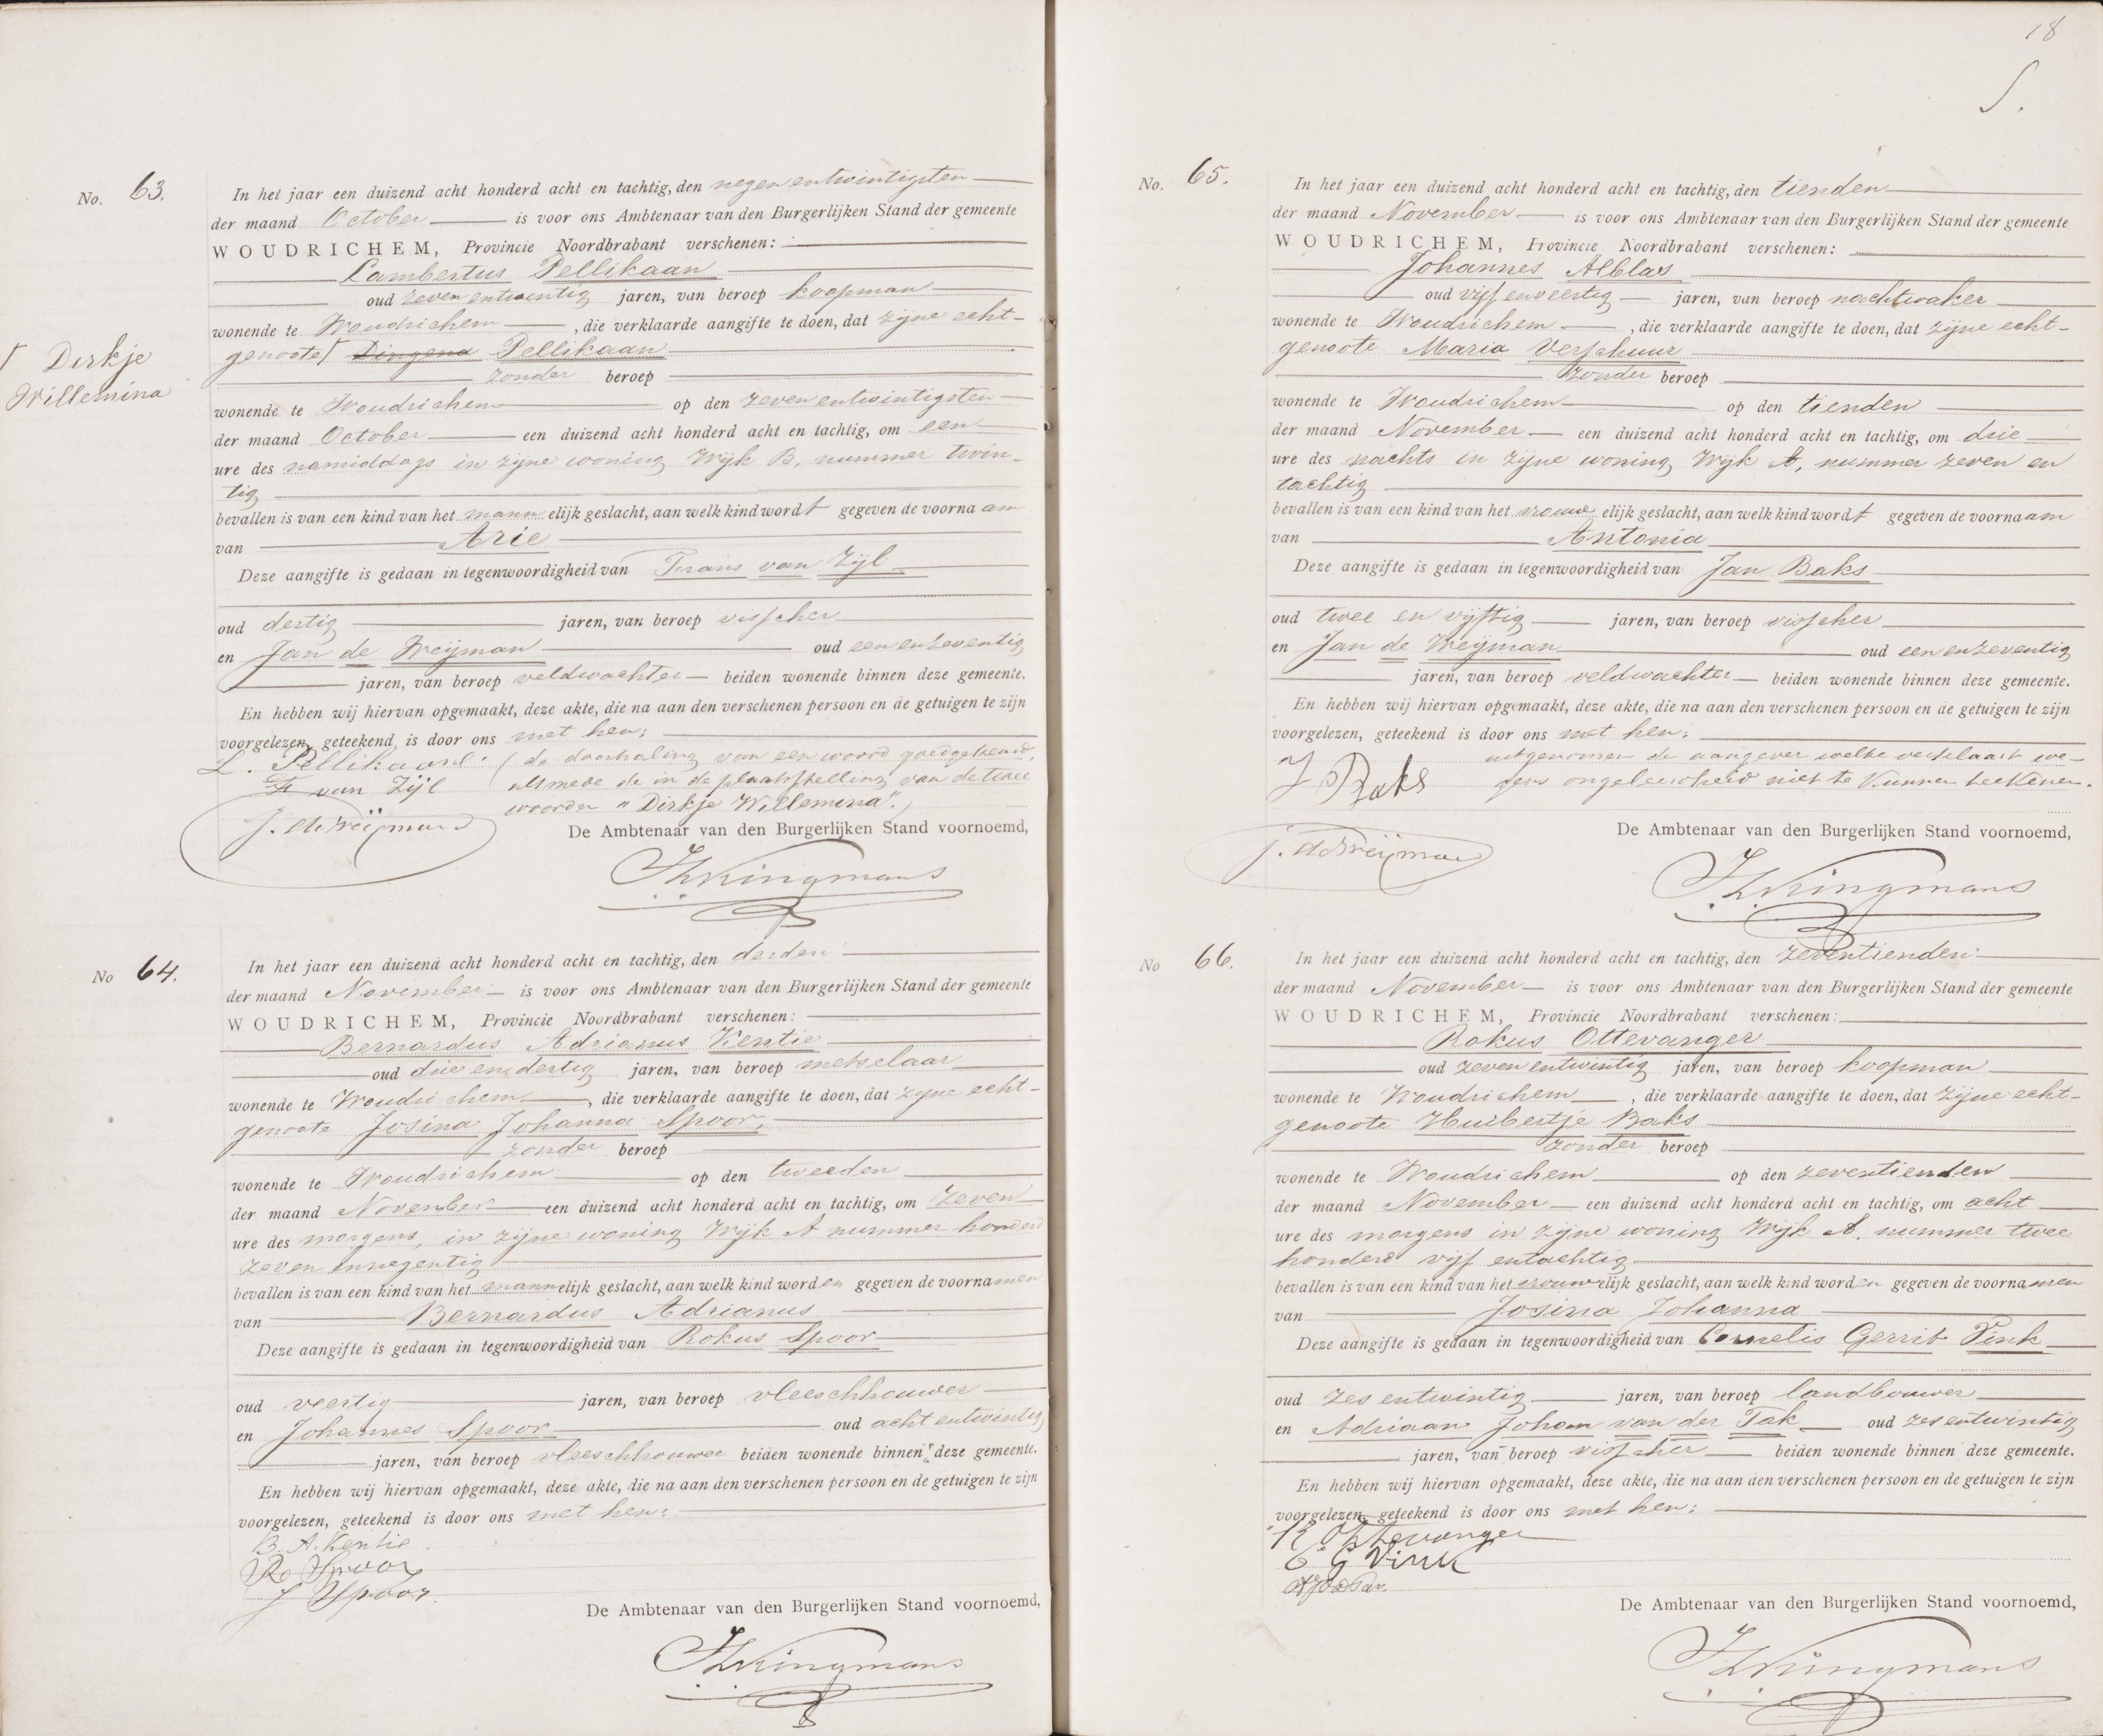 No. 63.
In het jaar een duizend acht honderd acht en tachtig, den negenentwintigsten
der maand October is voor ons Ambtenaar van den Burgerlijken Stand der gemeente
WOUDRICHEM, Provincie Noordbrabant verschenen:
Lambertus Pellikaan
oud zevenentwintig jaren, van beroep koopman
wonende te Woudrichem, die verklaarde aangifte te doen, dat zijne echt-
genoote Dingena Pellikaan
Dirkje
Willemina
zonder beroep
wonende te Woudrichem op den zevenentwintigsten
der maand October een duizend acht honderd acht en tachtig, om een
ure des namiddags in zijne woning Wijk B, nummer twin-
tig
bevallen is van een kind van het mannelijk geslacht, aan welk kind wordt gegeven de voornaam
van Arie
Deze aangifte is gedaan in tegenwoordigheid van Frans van Zijl
oud dertig jaren, van beroep visscher
en Jan de Weijman oud eenenzeventig
jaren, van beroep veldwachter beiden wonende binnen deze gemeente.
En hebben wij hiervan opgemaakt, deze akte, die na aan den verschenen persoon en de getuigen te zijn
voorgelezen, geteekend is door ons met hen;
L. Pellikaan (de doorhaling van een woord goedgekeurd,
F van Zijl alsmede de in de plaatsstelling van de twee
woorden "Dirkje Willemina".)
J. de Weijman
De Ambtenaar van den Burgerlijken Stand voornoemd,
Kingmans
No 64.
In het jaar een duizend acht honderd acht en tachtig, den derden
der maand November is voor ons Ambtenaar van den Burgerlijken Stand der gemeente
WOUDRICHEM, Provincie Noordbrabant verschenen:
Bernardus Adrianus Kentie
oud drie en dertig jaren, van beroep metselaar
wonende te Woudrichem, die verklaarde aangifte te doen, dat zijne echt-
genoote Josina Johanna Spoor,
zonder beroep
wonende te Woudrichem op den tweeden
der maand November een duizend acht honderd acht en tachtig, om zeven
ure des morgens, in zijne woning Wijk A nummer honderd
zeven ennegentig
bevallen is van een kind van het mannelijk geslacht, aan welk kind worden gegeven de voornamen
van Bernardus Adrianus
Deze aangifte is gedaan in tegenwoordigheid van Rokus Spoor
oud veertig jaren, van beroep vleeschhouwer
en Johannes Spoor oud acht entwintig
jaren, van beroep vleeschhouwer beiden wonende binnen deze gemeente.
En hebben wij hiervan opgemaakt, deze akte, die na aan den verschenen persoon en de getuigen te zijn
voorgelezen, geteekend is door ons met hen;
B. A. Kentie.
R Spoor
J Spoor.
De Ambtenaar van den Burgerlijken Stand voornoemd,
Kingmans
18
No. 65.
In het jaar een duizend acht honderd acht en tachtig, den tienden
der maand November is voor ons Ambtenaar van den Burgerlijken Stand der gemeente
WOUDRICHEM, Provincie Noordbrabant verschenen:
Johannes Alblas
oud vijf enveertig jaren, van beroep nachtwaker
wonende te Woudrichem, die verklaarde aangifte te doen, dat zijne echt-
genoote Maria Verschuur
zonder beroep
wonende te Woudrichem op den tienden
der maand November een duizend acht honderd acht en tachtig, om drie
ure des nachts in zijne woning Wijk A, nummer zeven en
tachtig
bevallen is van een kind van het vrouwelijk geslacht, aan welk kind wordt gegeven de voornaam
van Antonia
Deze aangifte is gedaan in tegenwoordigheid van Jan Baks
oud twee en vijftig jaren, van beroep visscher
en Jan de Weijman oud eenenzeventig
jaren, van beroep veldwachter beiden wonende binnen deze gemeente.
En hebben wij hiervan opgemaakt, deze akte, die na aan den verschenen persoon en de getuigen te zijn
voorgelezen, geteekend is door ons met hen;
uitgenomen de aangever welke verklaart we-
J Baks gens ongeleerdheid niet te kunnen teekenen.
J. de Weijman
De Ambtenaar van den Burgerlijken Stand voornoemd,
Kingmans
No 66.
In het jaar een duizend acht honderd acht en tachtig, den zeventienden
der maand November is voor ons Ambtenaar van den Burgerlijken Stand der gemeente
WOUDRICHEM, Provincie Noordbrabant verschenen:
Rokus Ottevanger
oud zevenentwintig jaren, van beroep koopman
wonende te Woudrichem, die verklaarde aangifte te doen, dat zijne echt-
genoote Huibertje Baks
zonder beroep
wonende te Woudrichem op den zeventienden
der maand November een duizend acht honderd acht en tachtig, om acht
ure des morgens in zijne woning Wijk A, nummer twee
honderd vijf entachtig
bevallen is van een kind van het vrouwelijk geslacht, aan welk kind worden gegeven de voornamen
van Josina Johanna
Deze aangifte is gedaan in tegenwoordigheid van Cornelis Gerrit Vink
oud zes entwintig jaren, van beroep landbouwer
en Adriaan Johan van der Tak oud zesentwintig
jaren, van beroep visscher beiden wonende binnen deze gemeente.
En hebben wij hiervan opgemaakt, deze akte, die na aan den verschenen persoon en de getuigen te zijn
voorgelezen, geteekend is door ons met hen;
R Ottevanger
C G Vink
De Ambtenaar van den Burgerlijken Stand voornoemd,
Kingmans